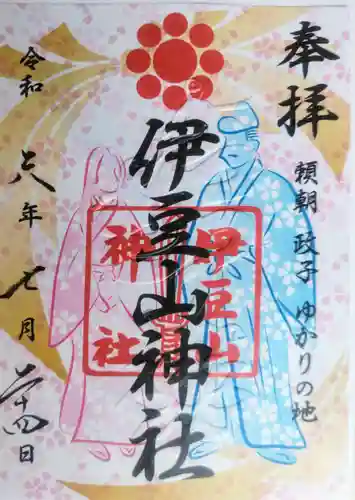 奉拝
頼朝 政子 ゆかりの地
伊豆山神社
伊豆山
神社
令和六年七月二十四日